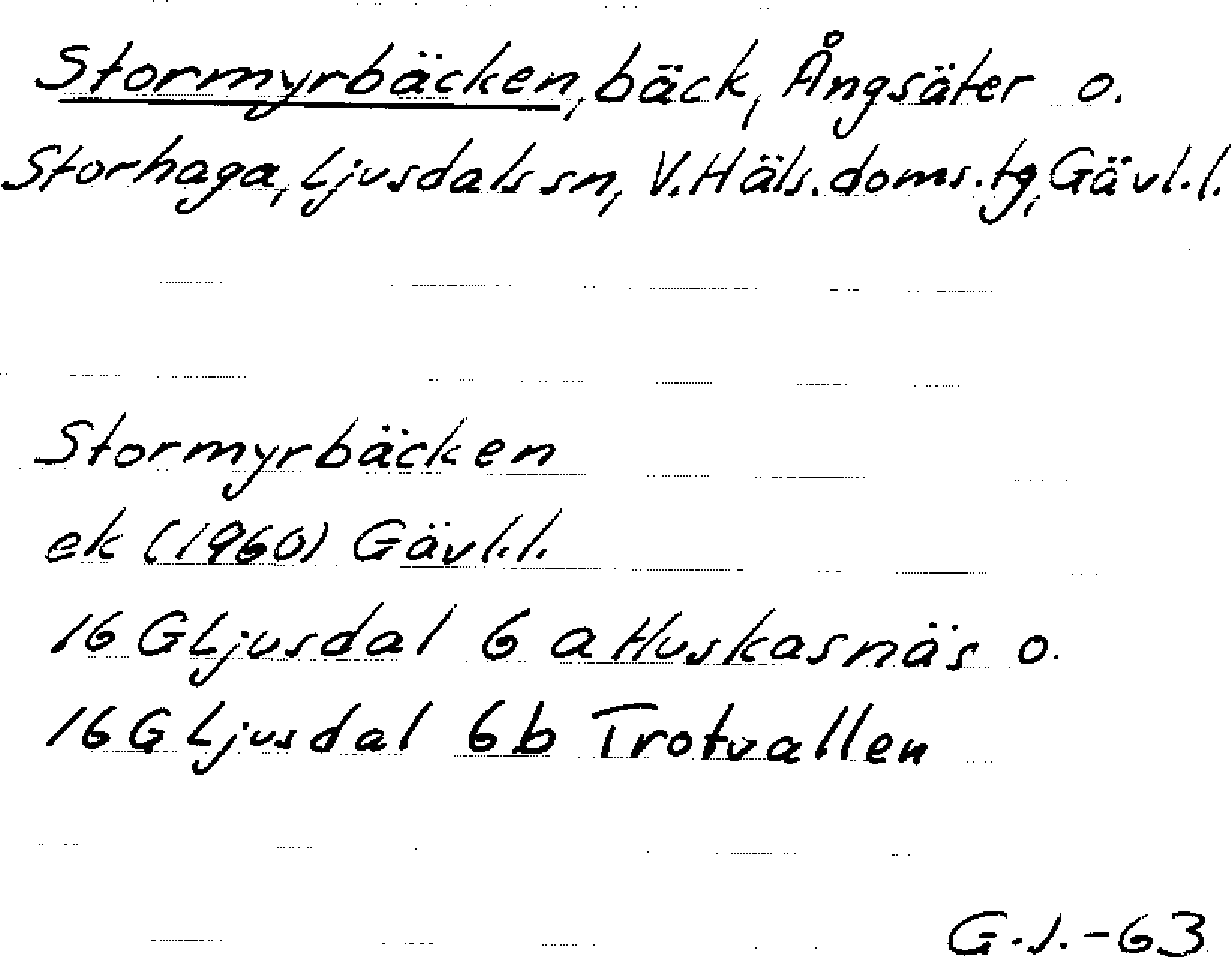 Stormyrbäcken, bäck, Ångsäter o.
Storhaga, Ljusdals sn, V. Häls. doms. tg, Gävl.l.
Stormyrbäcken
ek (1960) Gävl.l.
16 G Ljusdal 6 a Huskasnäs o.
16 G Ljusdal 6 b Trotvallen
G.J.-63